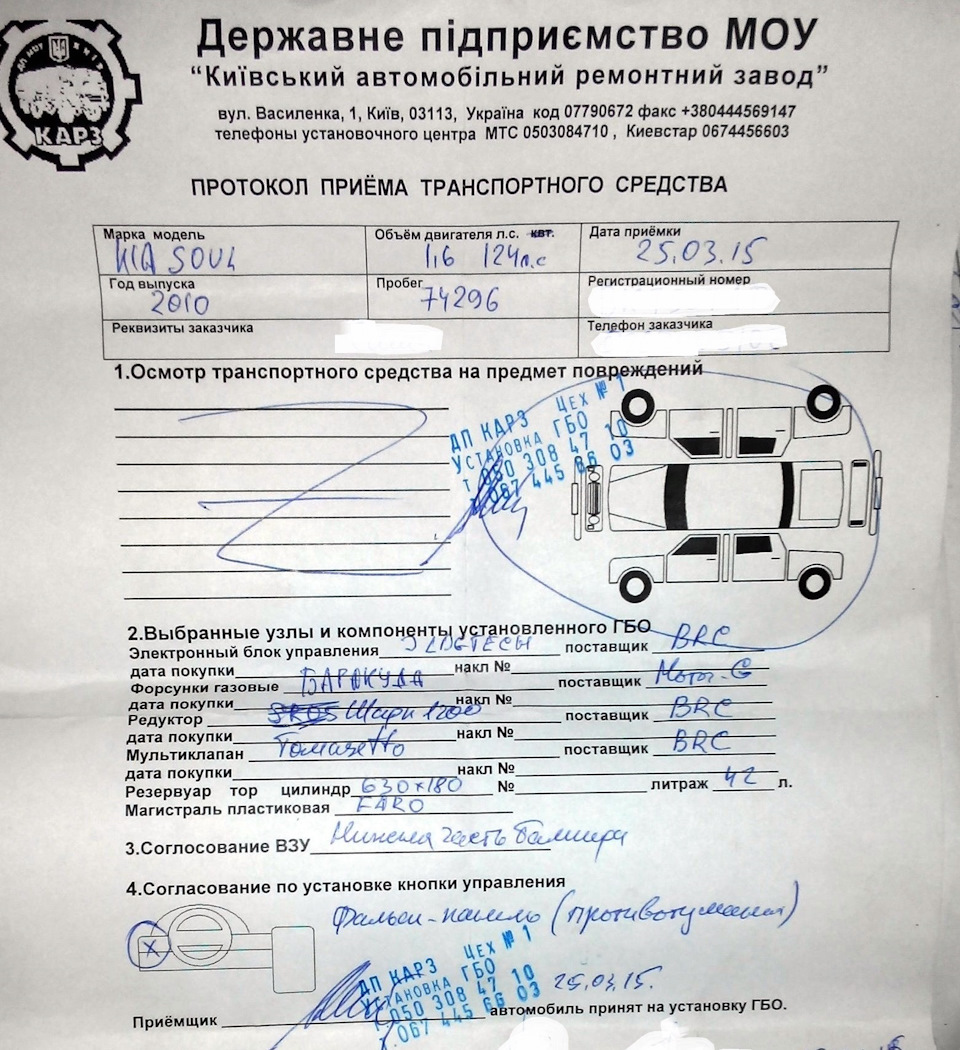 ДП МОУ КИЇВ
КАРЗ
Державне підприємство МОУ
“Київський автомобільний ремонтний завод”
вул. Василенка, 1, Київ, 03113, Україна код 07790672 факс +380444569147
телефоны установочного центра МТС 0503084710 , Киевстар 0674456603
ПРОТОКОЛ ПРИЁМА ТРАНСПОРТНОГО СРЕДСТВА
Марка модель Объём двигателя л.с. квт. Дата приёмки
KIA SOUL 1,6 124л.с 25.03.15
Год выпуска Пробег Регистрационный номер
2010 74296
Реквизиты заказчика Телефон заказчика
1.Осмотр транспортного средства на предмет повреждений
ДП КАРЗ ЦЕХ № 1
УСТАНОВКА ГБО
т.050 308 47 10
т.067 445 66 03
2.Выбранные узлы и компоненты установленного ГБО
Электронный блок управления поставщик BRC
дата покупки накл №
Форсунки газовые БАРАКУДА поставщик
дата покупки накл №
Редуктор 1200 поставщик BRC
дата покупки накл №
Мультиклапан Томазетто поставщик BRC
дата покупки накл №
Резервуар тор цилиндр 630x180 № литраж 42 л.
Магистраль пластиковая FARO
3.Согласование ВЗУ Нижняя часть бампера
4.Согласование по установке кнопки управления
X Фальш-панель (противотуманки)
ДП КАРЗ ЦЕХ № 1
УСТАНОВКА ГБО
т.050 308 47 10
т.067 445 66 03
25.03.15.
Приёмщик автомобиль принят на установку ГБО.